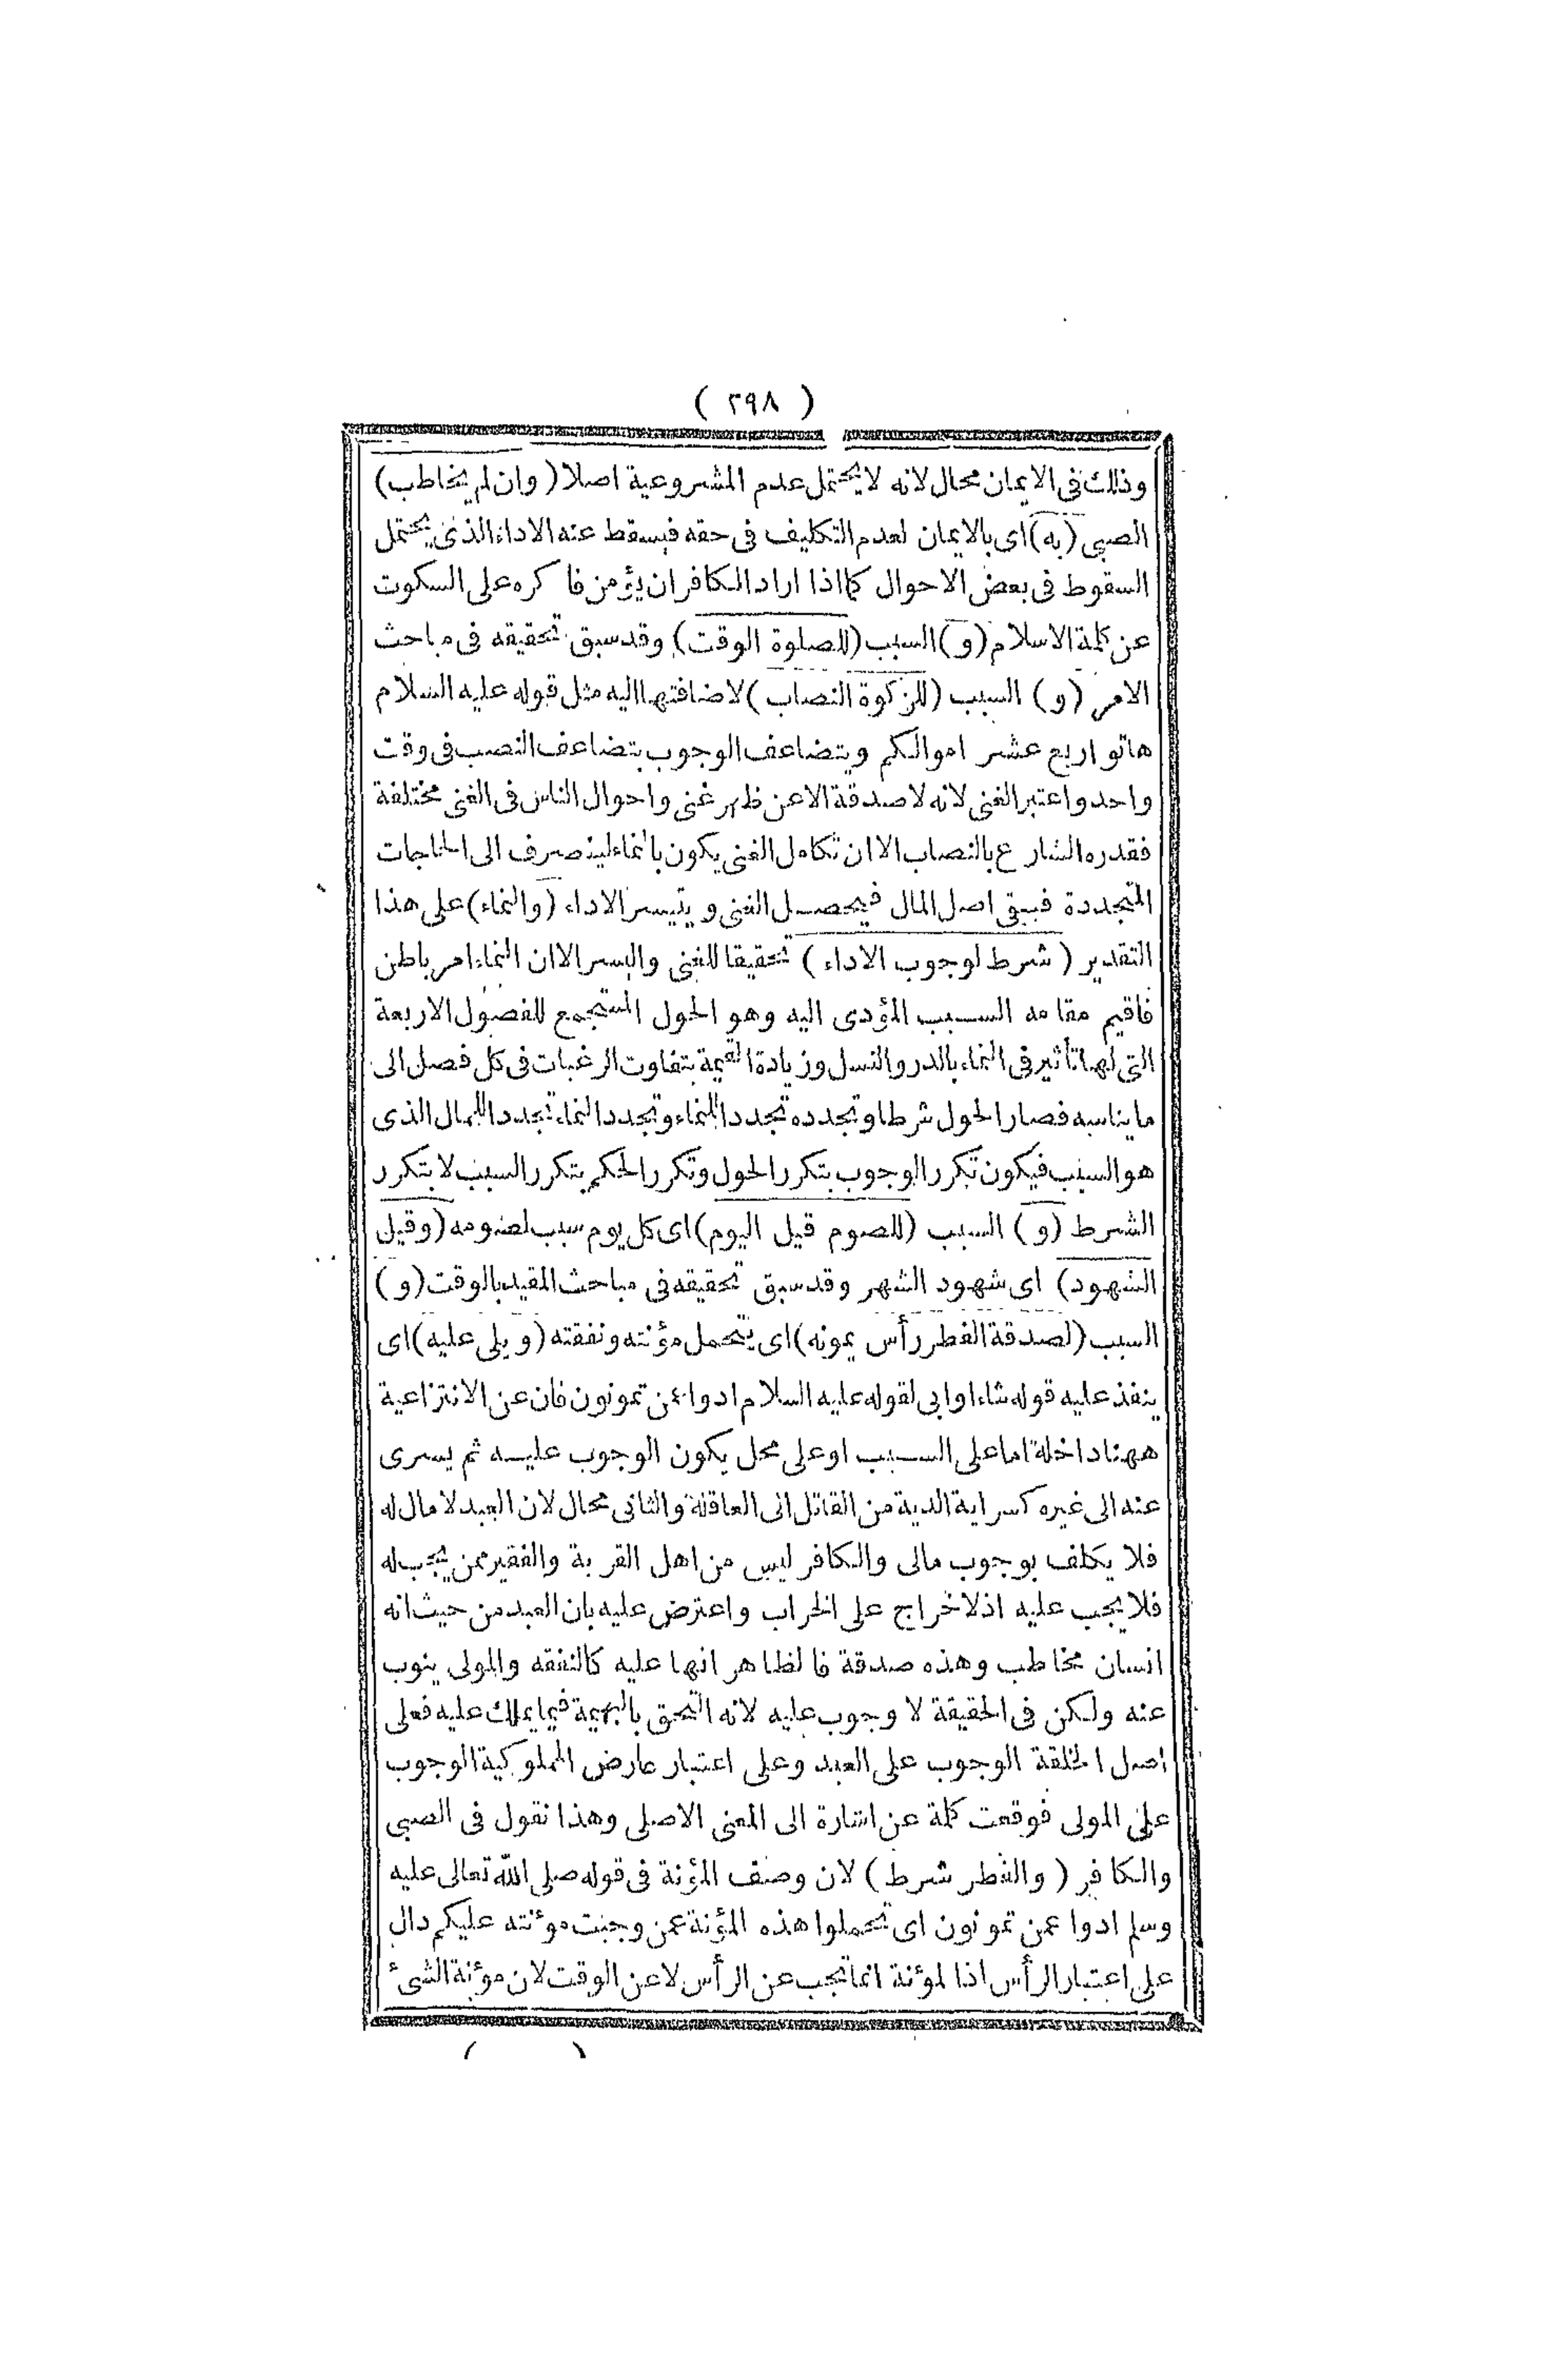 ( ٢٩٨ )
وذلك فى الايمان محال لانه لا يحتمل عدم المشروعية اصلا ( وان لم يخاطب)
الصبى (به) اى بالايمان لعدم التكليف فى حقه فيسقط عنه الاداء الذى يحتمل
السقوط فى بعض الاحوال كما اذا اراد الكافر ان يؤمن فا كره على السكوت
عن كلمة الاسلام (و) السبب (للصلوة الوقت) وقد سبق تحقيقه فى مباحث
الامر (و) السبب (للزكوة النصاب) لاضافتها اليه مثل قوله عليه السلام
هاتو اربع عشر اموالكم ويتضاعف الوجوب بتضاعف النصب فى وقت
واحد واعتبر الغنى لانه لا صدقة الا عن ظهر غنى واحوال الناس فى الغنى مختلفة
فقدره الشارع بالنصاب الا ان تكامل الغنى يكون بالنماء لينصرف الى الحاجات
المتجددة فيبقى اصل المال فيحصل الغنى ويتيسر الاداء (والنماء) على هذا
التقدير ( شرط لوجوب الاداء ) تحقيقا للغنى واليسر الا ان النماء امر باطن
فاقيم مقامه السبب المؤدى اليه وهو الحول المستجمع للفصول الاربعة
التى لها تأثير فى النماء بالدر والنسل وزيادة القيمة بتفاوت الرغبات فى كل فصل الى
ما يناسبه فصار الحول شرطا وتجدده تجددا للنماء وتجدد النماء تجددا للمال الذى
هو السبب فيكون تكرر الوجوب بتكرر الحول وتكرر الحكم بتكرر السبب لا بتكرر
الشرط (و) السبب (للصوم قيل اليوم) اى كل يوم سبب لصومه (وقيل
الشهود) اى شهود الشهر وقد سبق تحقيقه فى مباحث المقيد بالوقت (و)
السبب (لصدقة الفطر رأس يمونه) اى يتحمل مؤنته ونفقته (ويلى عليه) اى
ينفذ عليه قوله شاء او ابى لقوله عليه السلام ادوا عمن تمونون فان عن الانتزاعية
ههنا داخلة اما على السبب او على محل يكون الوجوب عليه ثم يسرى
عنه الى غيره كسراية الدية من القاتل الى العاقلة والثانى محال لان العبد لا مال له
فلا يكلف بوجوب مالى والكافر ليس من اهل القربة والفقير ممن يجب له
فلا يجب عليه اذ لا خراج على الخراب واعترض عليه بان العبد من حيث انه
انسان مخاطب وهذه صدقة فالظاهر انها عليه كالنفقه والمولى ينوب
عنه ولكن فى الحقيقة لا وجوب عليه لانه التحق بالبهيمة فيما يملك عليه فعلى
اصل الخلقة الوجوب على العبد وعلى اعتبار عارض المملوكية الوجوب
على المولى فوقعت كلمة عن اشارة الى المعنى الاصلى وهذا نقول فى الصبى
والكافر ( والفطر شرط ) لان وصف المؤنة فى قوله صلى الله تعالى عليه
وسلم ادوا عمن تمونون اى تحملوا هذه المؤنة عمن وجبت موءنته عليكم دال
على اعتبار الرأس اذا لمؤنة انما تجب عن الرأس لا عن الوقت لان موءنة الشىء